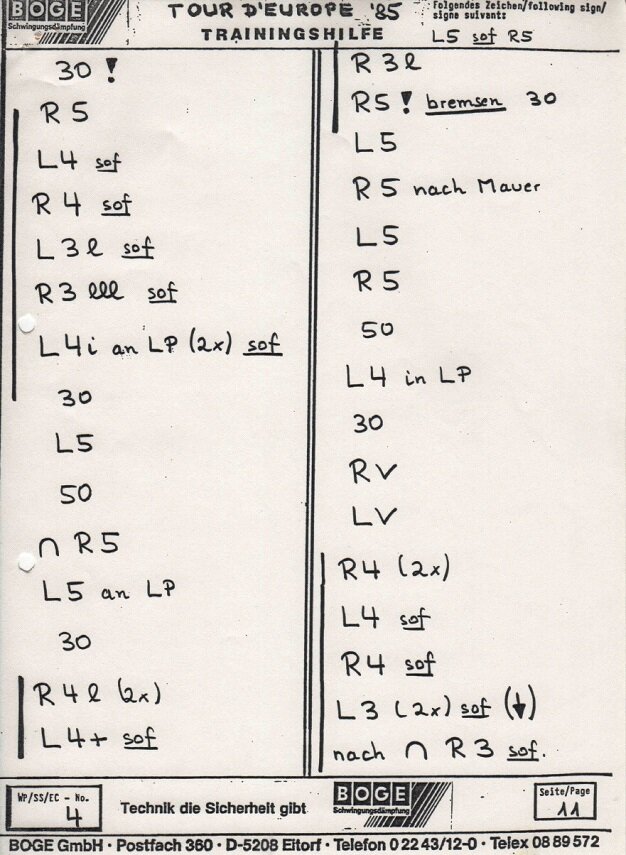 BOGE
Schwingungsdämpfung
TOUR D'EUROPE '85
TRAININGSHILFE
Folgendes Zeichen/following sign/
signe suivant:
L5 sof R5
30 !
R 5
L4 sof
R 4 sof
L 3 l sof
R3 lll sof
L4i an LP (2x) sof
30
L5
50
∩ R5
L5 an LP
30
R4 l (2x)
L4+ sof
R 3 l
R5 ! bremsen 30
L5
R 5 nach Mauer
L5
R 5
50
L4 in LP
30
R✓
L✓
R4 (2x)
L4 sof
R4 sof
L3 (2x) sof (↓)
nach ∩ R3 sof.
WP/SS/EC - No.
4
Technik die Sicherheit gibt
BOGE
Schwingungsdämpfung
Seite/Page
11
BOGE GmbH · Postfach 360 · D-5208 Eitorf · Telefon 0 22 43/12-0 · Telex 08 89 572